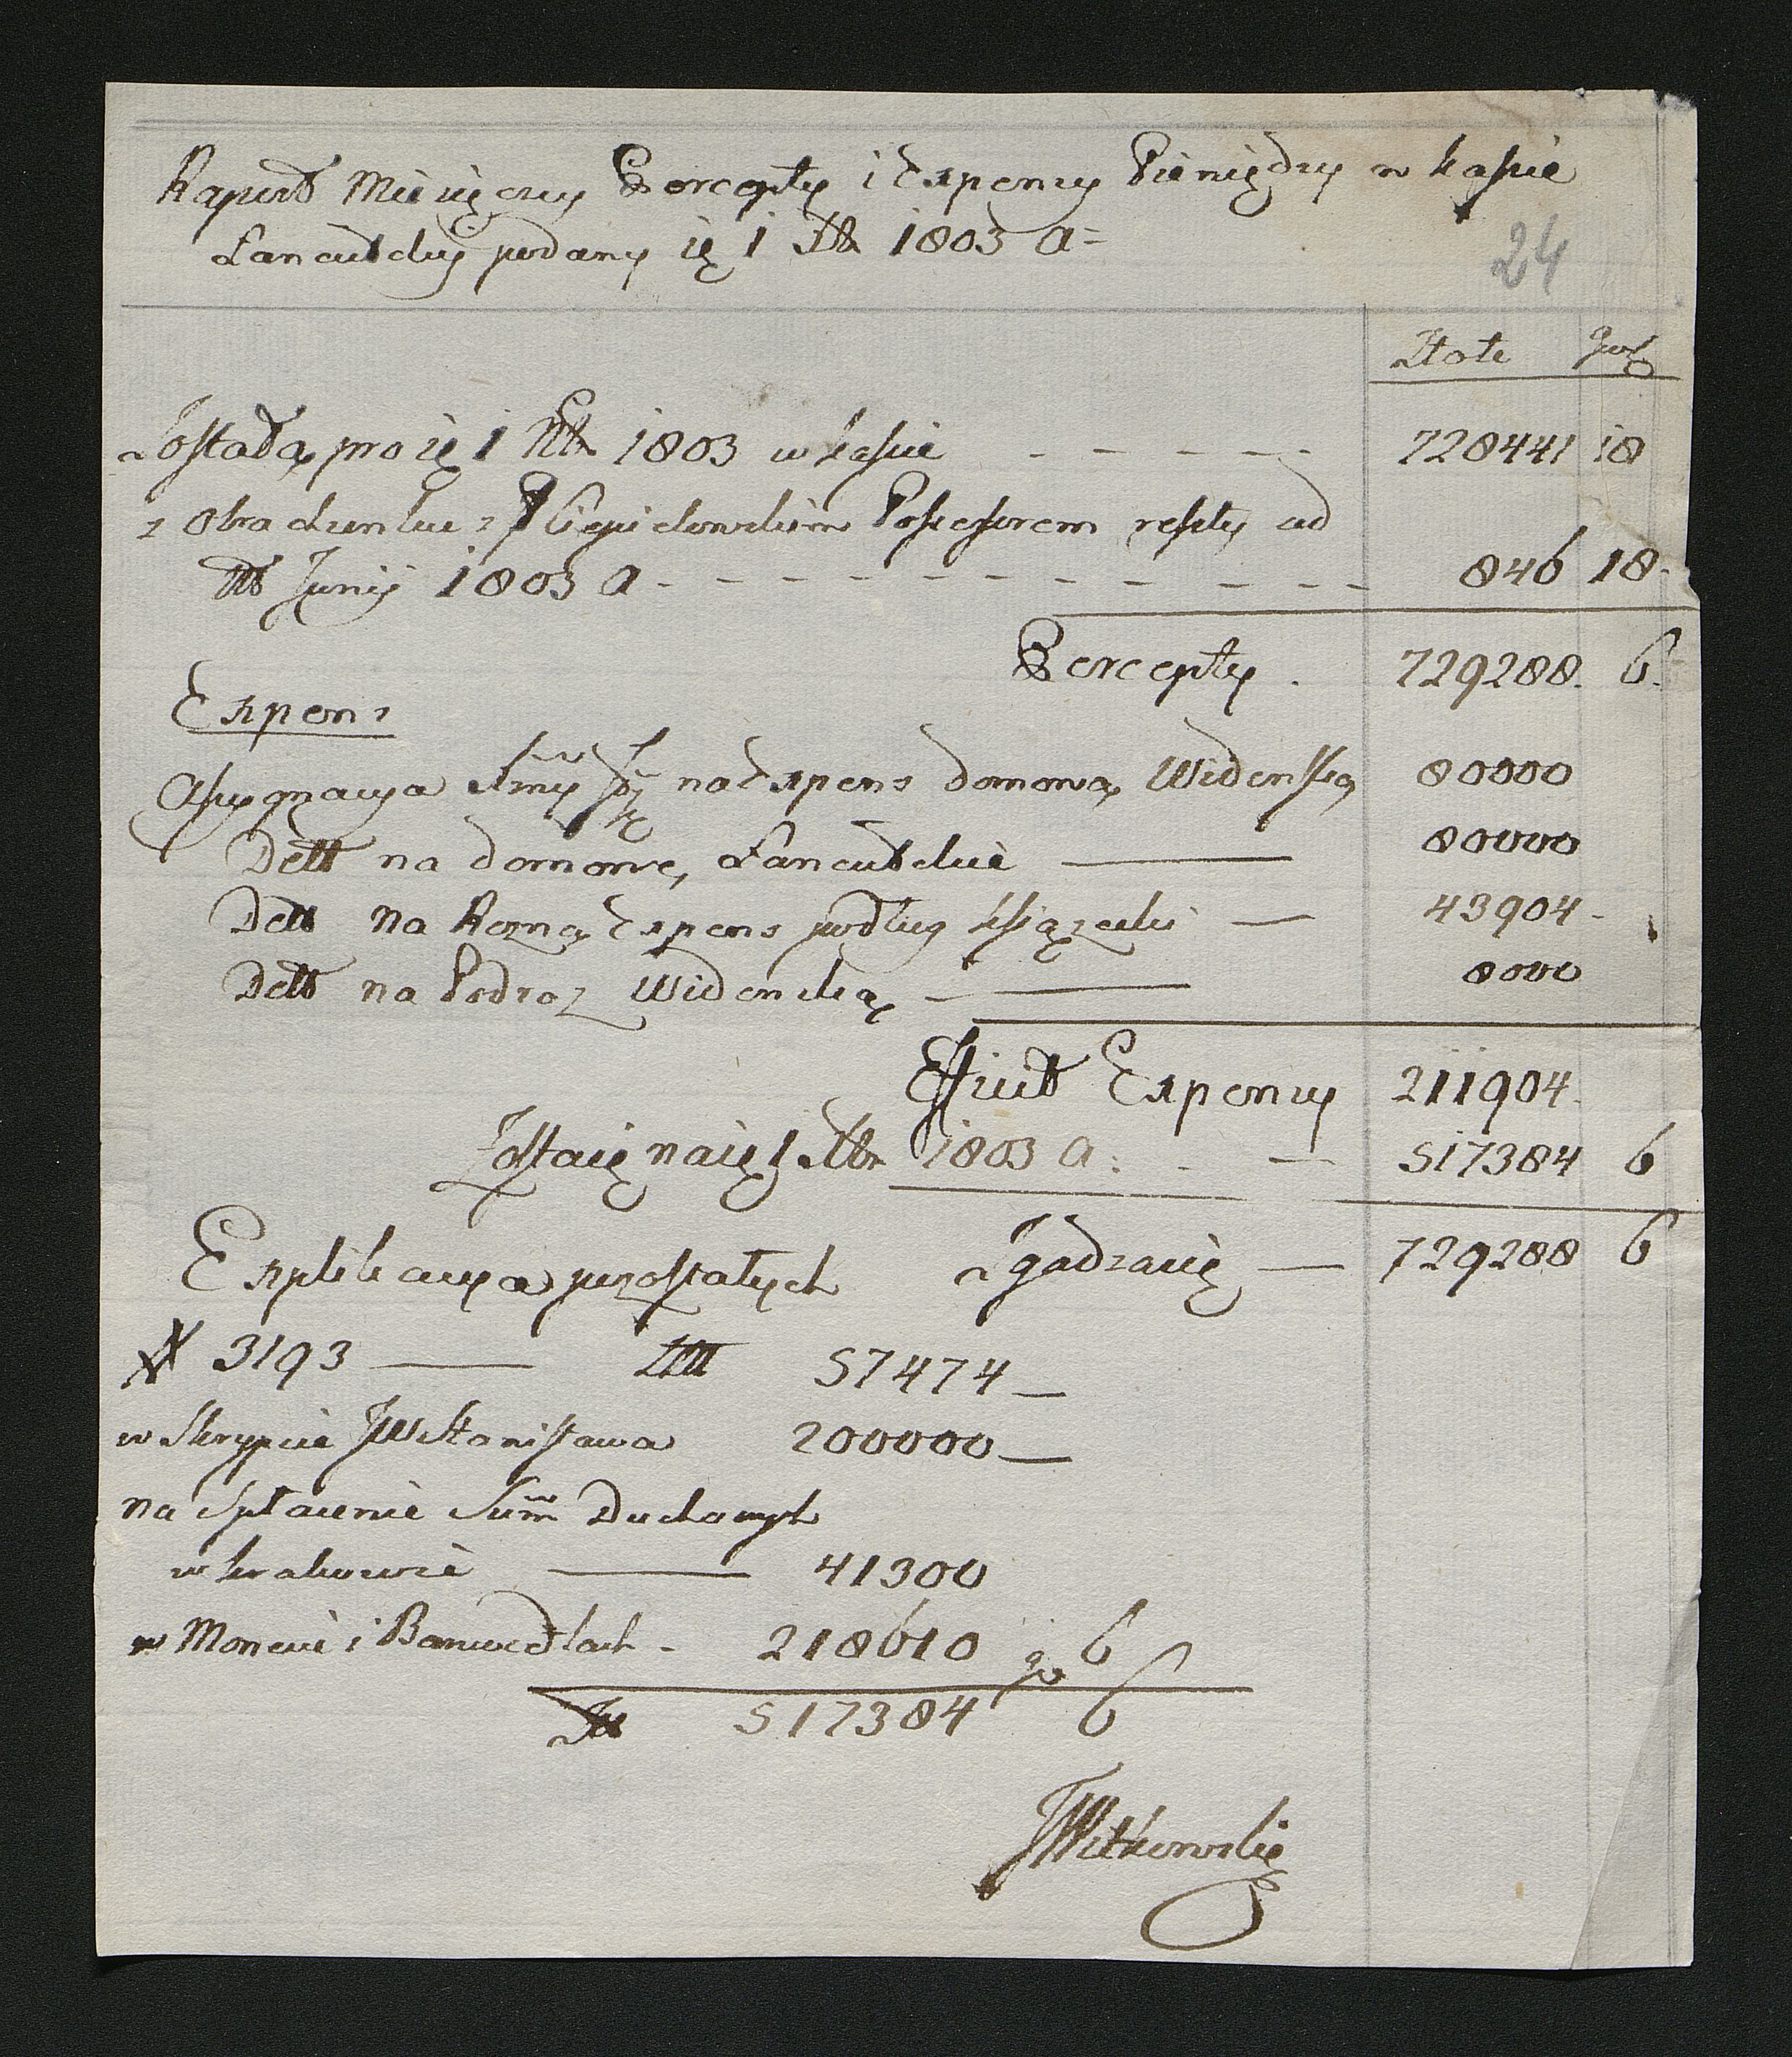 Raport Miesięczny Percepty i Expensy Pieniędzy w kassie
Łancutckiey podany ię 1 1803 a=
24
Złote gro
Zostało pro ię 1 1803 w kassie - - - - - 728441 18
z Obrachunku z P Possessorem reszty ad
Junij 1803 a - - - - - - - - - - - 846 18.
Percepty . 729288. 6.
Expens
Assygnacya na Expens domową Widenską 80000
Dett na domowe, Łancutckie — 80000
Dett na Rozną Expens podług Ksiązeczki — 43904 -
Dett na Podroz Widenską — 8000
Efficit Expensy 211904.
Zostaię na ię 1 1803 a : - — 517384 6
Explikacya pozostałych Zgadzaię — 729288 6
# 3193 — 57474 —
w Skrypcie JW Stanisława 200000 —
na Spłacenie Sum̃ Duchownych
w Krakowie — 41300
w Monecie i Bancocetlach - 218610 g 6
517384 6
JWitkowski